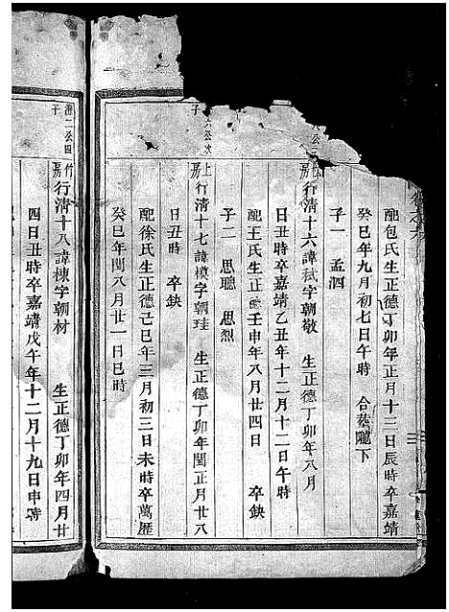 配包氏生正德丁卯年正月十三日辰時卒嘉靖
癸巳年九月初七日午時 合葬隴下
子一 孟泗
房行清十六諱栻字朝敬 生正德丁卯年八月
日丑時卒嘉靖乙丑年十二月十二日午時
配王氏生正德壬申年八月廿四日 卒缺
子二 思聰 思烈
六公次子
上房行清十七諱模字朝珪 生正德丁卯年閏正月廿八
日丑時 卒缺
配徐氏生正德己巳年三月初三日未時卒萬歷
癸巳年閏八月廿一日巳時
二公四子
竹嘉行清十八諱棟字朝材 生正德丁卯年四月廿
四日丑時卒嘉靖戊午年十二月十九日申時